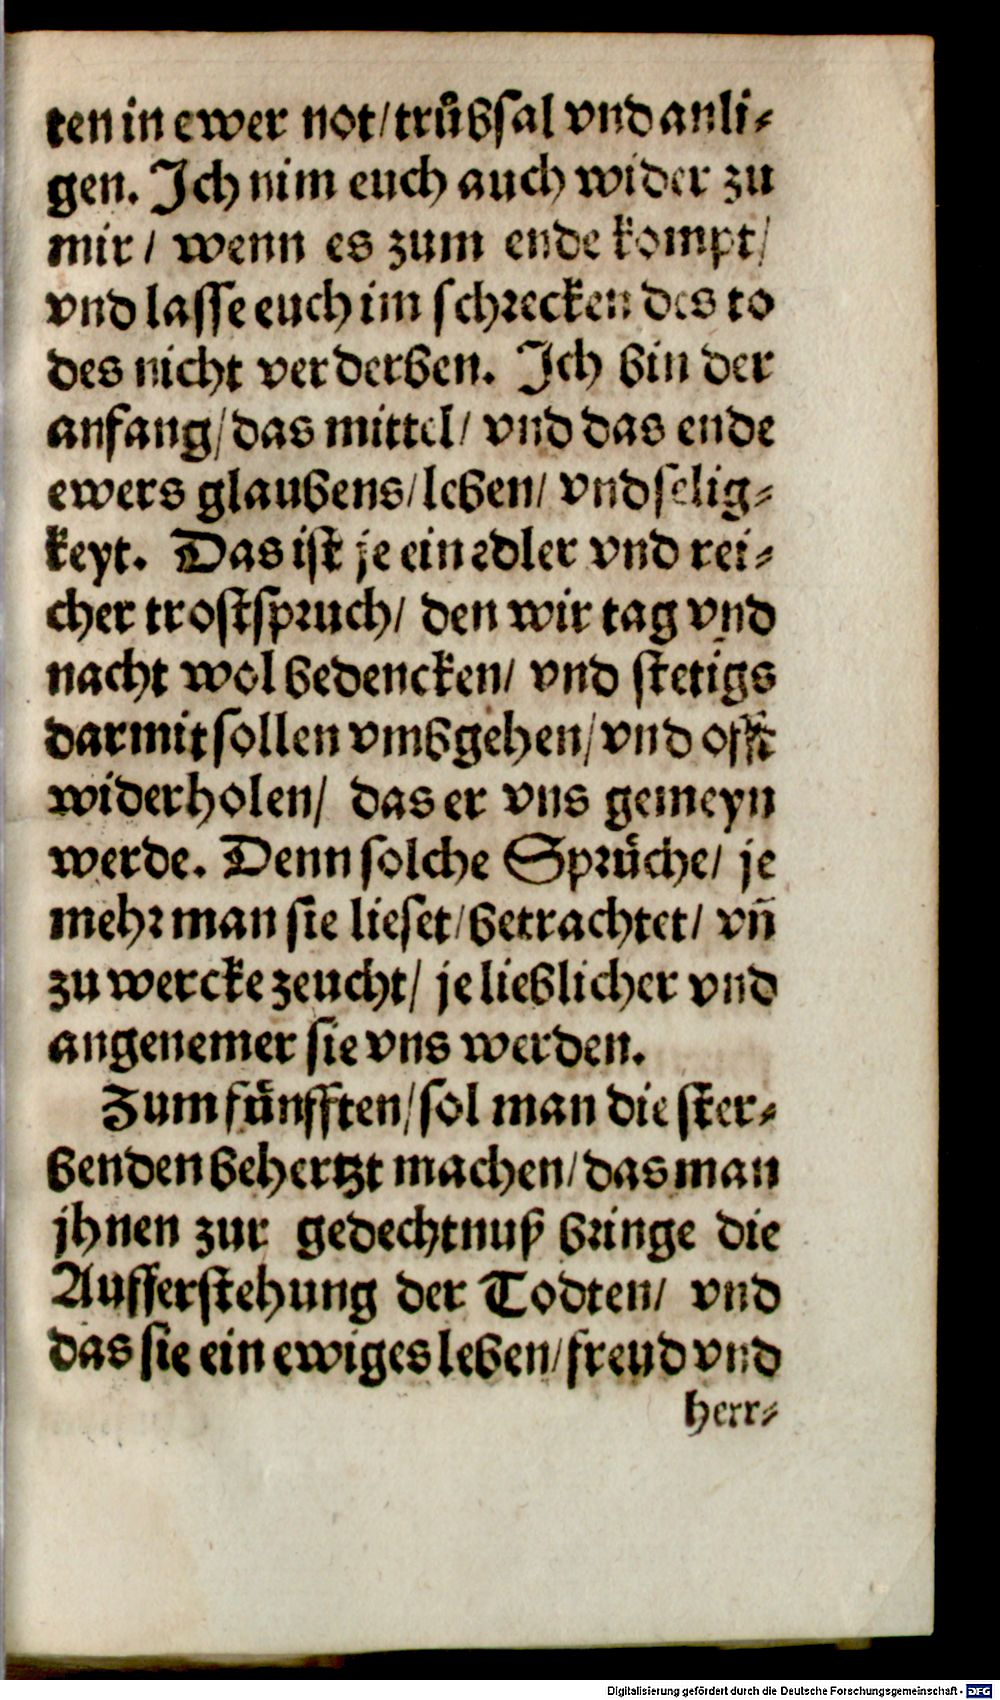 ten in ewer not/trůbsal vnd anli-
gen. Ich nim euch auch wider zu
mir/ wenn es zum ende kompt/
vnd lasse euch im schrecken des to
des nicht verderben. Ich bin der
anfang/das mittel/ vnd das ende
ewers glaubens/leben/ vnd selig-
keyt. Das ist je ein edler vnd rei-
cher trostspruch/ den wir tag vnd
nacht wol bedencken/ vnd stetigs
darmit sollen vmbgehen/vnd offt
widerholen/ das er vns gemeyn
werde. Denn solche Sprüche/ je
mehr man sie lieset/betrachtet/ vñ
zu wercke zeucht/ je lieblicher vnd
angenemer sie vns werden.
Zum fünfften/sol man die ster-
benden behertzt machen/das man
jhnen zur gedechtnuß bringe die
Aufferstehung der Todten/ vnd
das sie ein ewiges leben/freud vnd
herr-
Digitalisierung gefördert durch die Deutsche Forschungsgemeinschaft - DFG